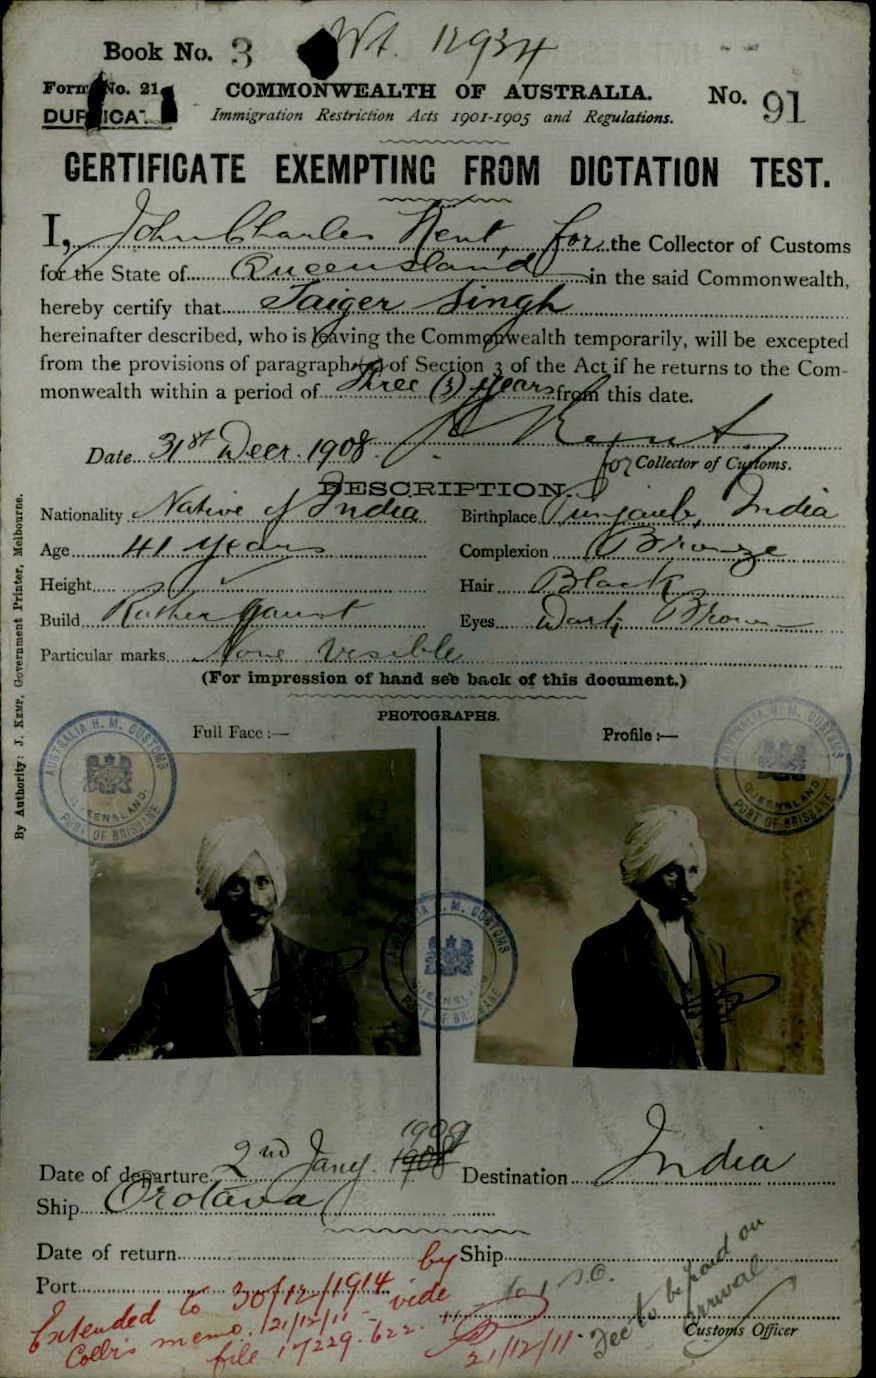 Book No. 3 Wt. 12934
Form No. 21.
COMMONWEALTH OF AUSTRALIA.
No. 91
DUPLICATE
Immigration Restriction Acts 1901-1905 and Regulations.
CERTIFICATE EXEMPTING FROM DICTATION TEST.
I, John Charles Kent, for the Collector of Customs
for the State of Queensland in the said Commonwealth,
hereby certify that Taiger Singh
hereinafter described, who is leaving the Commonwealth temporarily, will be excepted
from the provisions of paragraph (a) of Section 3 of the Act if he returns to the Com-
monwealth within a period of three (3) years from this date.
Date 31st Decr. 1908. J C Kent
for Collector of Customs.
DESCRIPTION.
Nationality Native of India Birthplace Punjaub, India
Age 41 years Complexion Bronze
Height Hair Black
Build Rather gaunt Eyes Dark Brown
Particular marks None visible
(For impression of hand see back of this document.)
PHOTOGRAPHS.
Full Face :— Profile :—
AUSTRALIA H. M. CUSTOMS
QUEENSLAND.
PORT OF BRISBANE
AUSTRALIA H. M. CUSTOMS
QUEENSLAND.
PORT OF BRISBANE
AUSTRALIA H. M. CUSTOMS
QUEENSLAND.
PORT OF BRISBANE
By Authority: J. KEMP, Government Printer, Melbourne.
1909
Date of departure 2nd Jany. 1908 Destination India
Ship Orotava
Date of return by Ship
Port
Extended to 30/12/1914 vide
Coll's memo. 21/12/11 -
file 17229.622.
21/12/11.
Fee to be paid on
arrival
Customs Officer